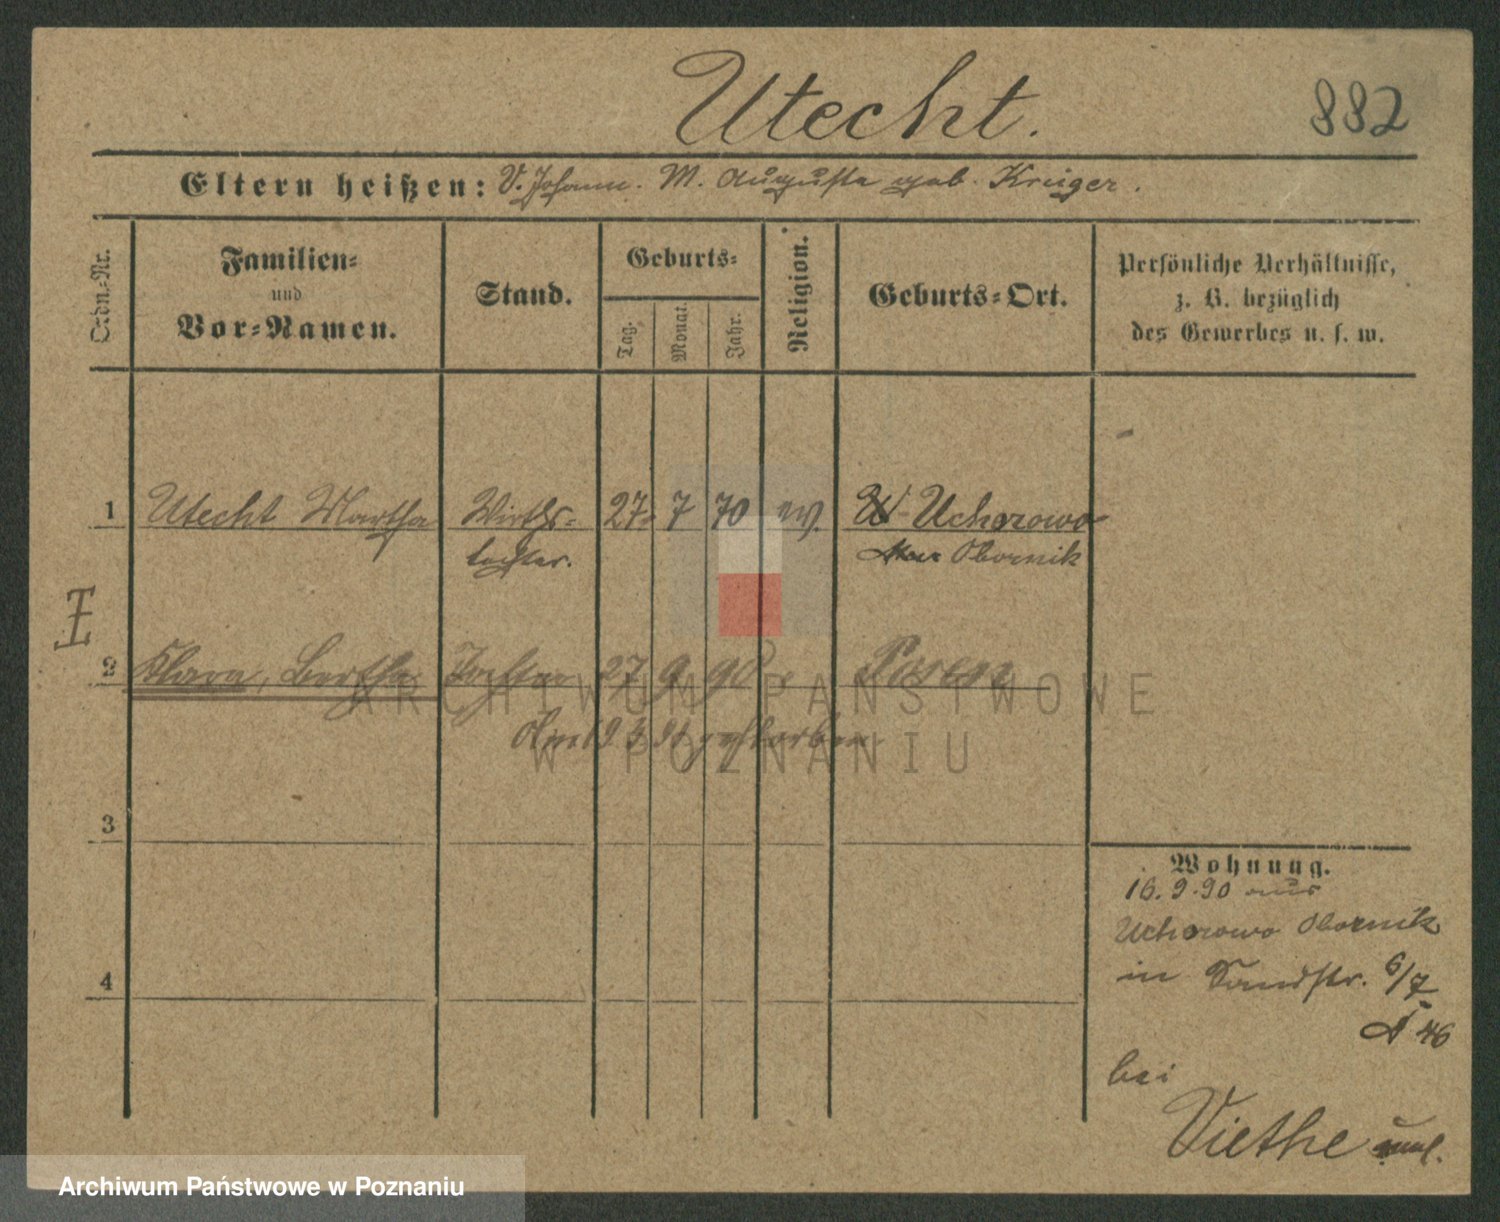 Utecht.
882
Eltern heißen: V. Johann. M. Auguste geb. Krüger.
Ordn.-Nr.
Familien-
und
Vor-Namen.
Stand.
Geburts-
Tag.
Monat.
Jahr.
Religion.
Geburts-Ort.
Persönliche Verhältnisse,
z. B. bezüglich
des Gewerbes u. s. w.
1 Utecht Martha Wirths- 27. 7 70 ev. Uchorowo
tochter. Obornik
I
2 Klara, Bertha Tochter 27 9 90 Posen
gestorben
3
4
Wohnung.
16.9.90 aus
Uchorowo Obornik
in Sandstr. 6/7
46
bei
Viethe
ARCHIWUM PAŃSTWOWE
W POZNANIU
Archiwum Państwowe w Poznaniu